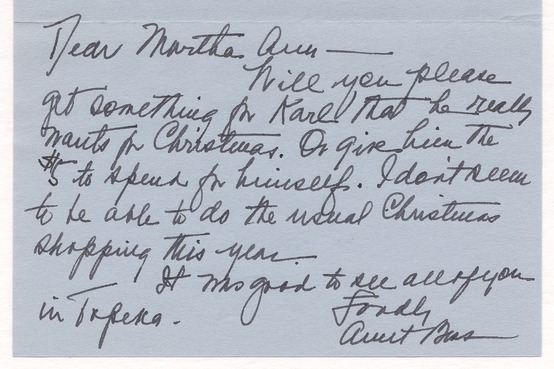 Dear Martha Ann —
Will you please
get something for Karl that he really
wants for Christmas. Or give him the
$5 to spend for himself. I don't seem
to be able to do the usual Christmas
shopping this year.
It was good to see all of you
in Topeka.
Fondly
Aunt Bess